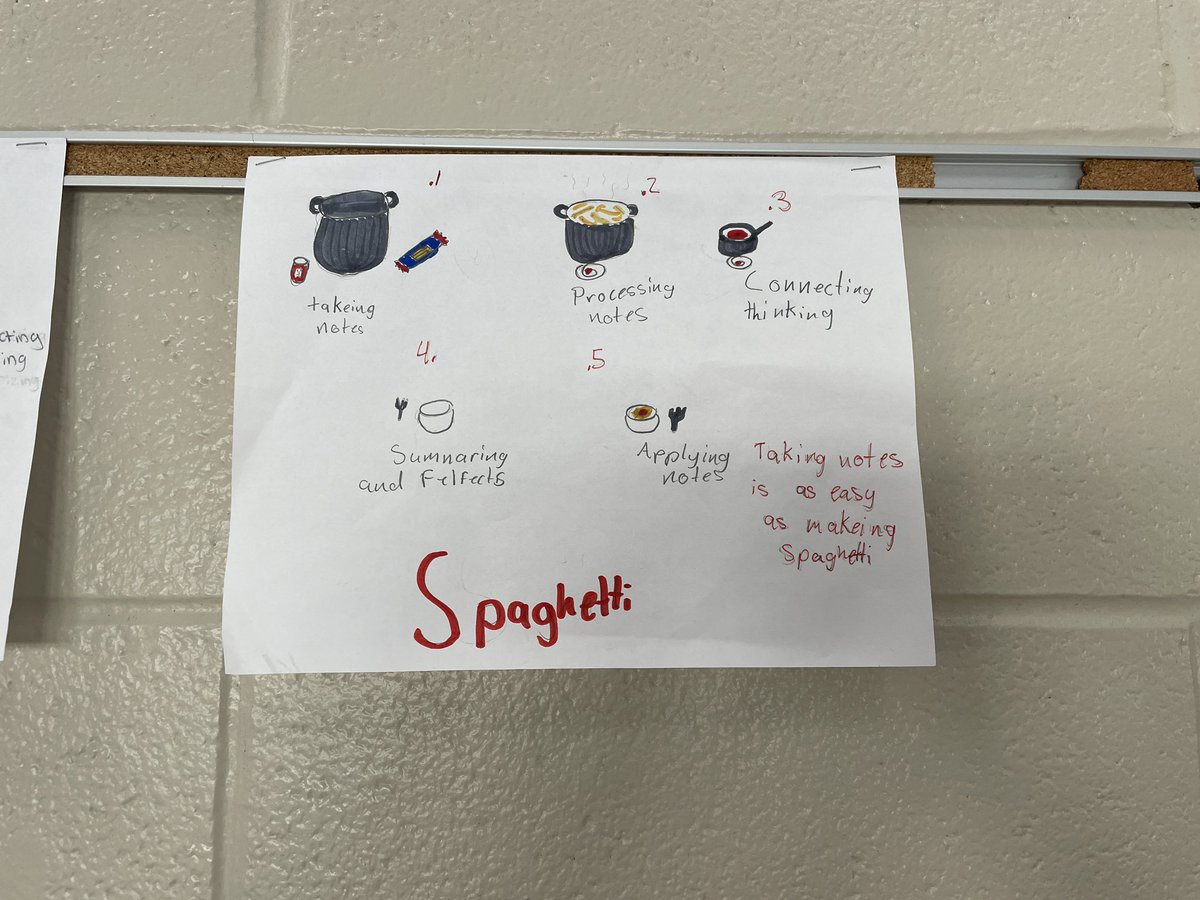 cting
ing
.1
takeing
notes
.2
Processing
notes
.3
Connecting
thinking
4.
Sumnaring
and Felfects
.5
Applying
notes
Taking notes
is as easy
as makeing
Spaghetti
Spaghetti